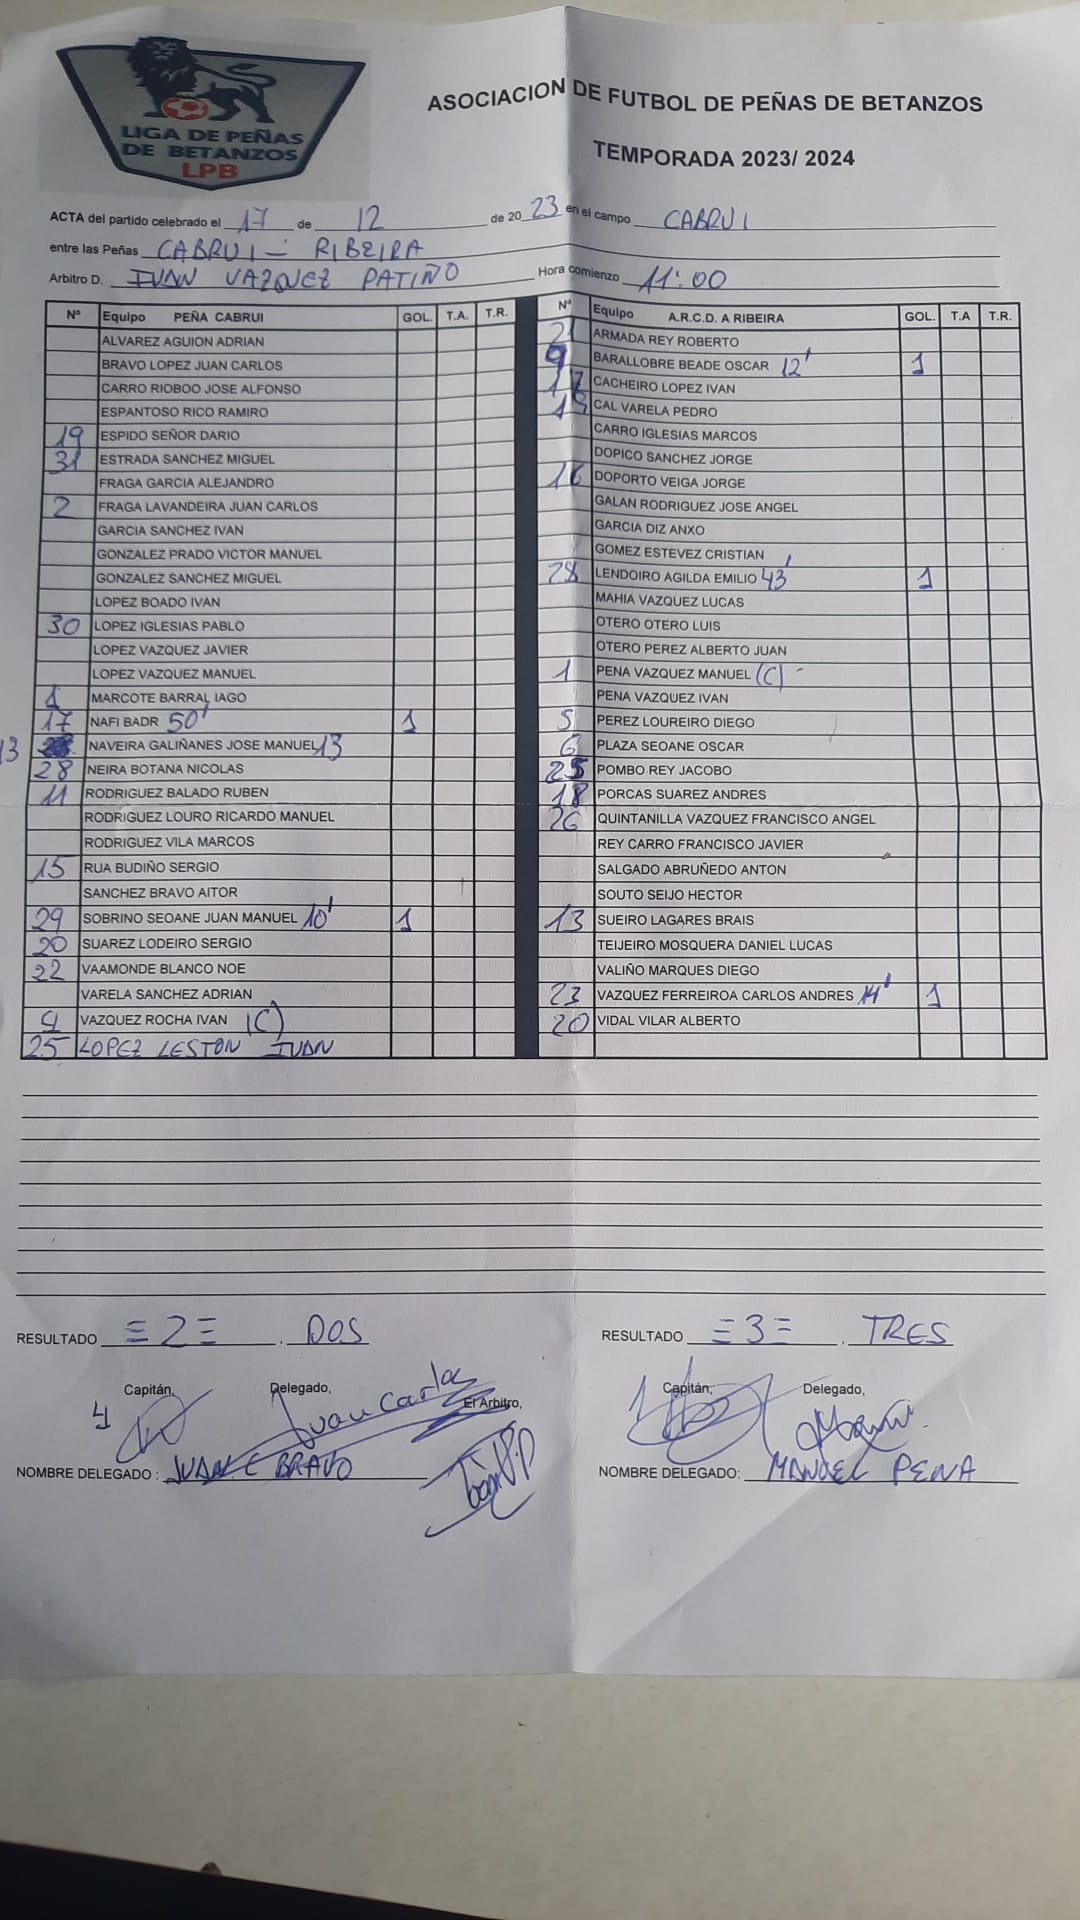 LIGA DE PEÑAS
DE BETANZOS
LPB
ASOCIACION DE FUTBOL DE PEÑAS DE BETANZOS
TEMPORADA 2023/ 2024
ACTA del partido celebrado el 17 de 12 de 20 23 en el campo CABRUI
entre las Peñas CABRUI - RIBEIRA
Arbitro D. IVAN VAZQUEZ PATIÑO Hora comienzo 11:00
Nº Equipo PEÑA CABRUI GOL. T.A. T.R.
ALVAREZ AGUION ADRIAN
BRAVO LOPEZ JUAN CARLOS
CARRO RIOBOO JOSE ALFONSO
ESPANTOSO RICO RAMIRO
19 ESPIDO SEÑOR DARIO
31 ESTRADA SANCHEZ MIGUEL
FRAGA GARCIA ALEJANDRO
2 FRAGA LAVANDEIRA JUAN CARLOS
GARCIA SANCHEZ IVAN
GONZALEZ PRADO VICTOR MANUEL
GONZALEZ SANCHEZ MIGUEL
LOPEZ BOADO IVAN
30 LOPEZ IGLESIAS PABLO
LOPEZ VAZQUEZ JAVIER
LOPEZ VAZQUEZ MANUEL
MARCOTE BARRAL IAGO
17 NAFI BADR 50' 1
13 NAVEIRA GALIÑANES JOSE MANUEL 13
28 NEIRA BOTANA NICOLAS
11 RODRIGUEZ BALADO RUBEN
RODRIGUEZ LOURO RICARDO MANUEL
RODRIGUEZ VILA MARCOS
15 RUA BUDIÑO SERGIO
SANCHEZ BRAVO AITOR
29 SOBRINO SEOANE JUAN MANUEL 10' 1
20 SUAREZ LODEIRO SERGIO
22 VAAMONDE BLANCO NOE
VARELA SANCHEZ ADRIAN
VAZQUEZ ROCHA IVAN (C)
25 LOPEZ LESTON IVAN
Nº Equipo A.R.C.D. A RIBEIRA GOL. T.A T.R.
21 ARMADA REY ROBERTO
9 BARALLOBRE BEADE OSCAR 12' 1
17 CACHEIRO LOPEZ IVAN
CAL VARELA PEDRO
CARRO IGLESIAS MARCOS
DOPICO SANCHEZ JORGE
16 DOPORTO VEIGA JORGE
GALAN RODRIGUEZ JOSE ANGEL
GARCIA DIZ ANXO
GOMEZ ESTEVEZ CRISTIAN
28 LENDOIRO AGILDA EMILIO 43' 1
MAHIA VAZQUEZ LUCAS
OTERO OTERO LUIS
OTERO PEREZ ALBERTO JUAN
1 PENA VAZQUEZ MANUEL (C)
PENA VAZQUEZ IVAN
5 PEREZ LOUREIRO DIEGO
6 PLAZA SEOANE OSCAR
25 POMBO REY JACOBO
18 PORCAS SUAREZ ANDRES
26 QUINTANILLA VAZQUEZ FRANCISCO ANGEL
REY CARRO FRANCISCO JAVIER
SALGADO ABRUÑEDO ANTON
SOUTO SEIJO HECTOR
13 SUEIRO LAGARES BRAIS
TEIJEIRO MOSQUERA DANIEL LUCAS
VALIÑO MARQUES DIEGO
23 VAZQUEZ FERREIROA CARLOS ANDRES 14' 1
20 VIDAL VILAR ALBERTO
RESULTADO =2= . DOS
RESULTADO =3= . TRES
Capitán, Delegado, El Arbitro,
Juan Carlos
NOMBRE DELEGADO : JUAN C BRAVO
Capitán, Delegado,
NOMBRE DELEGADO: MANUEL PENA